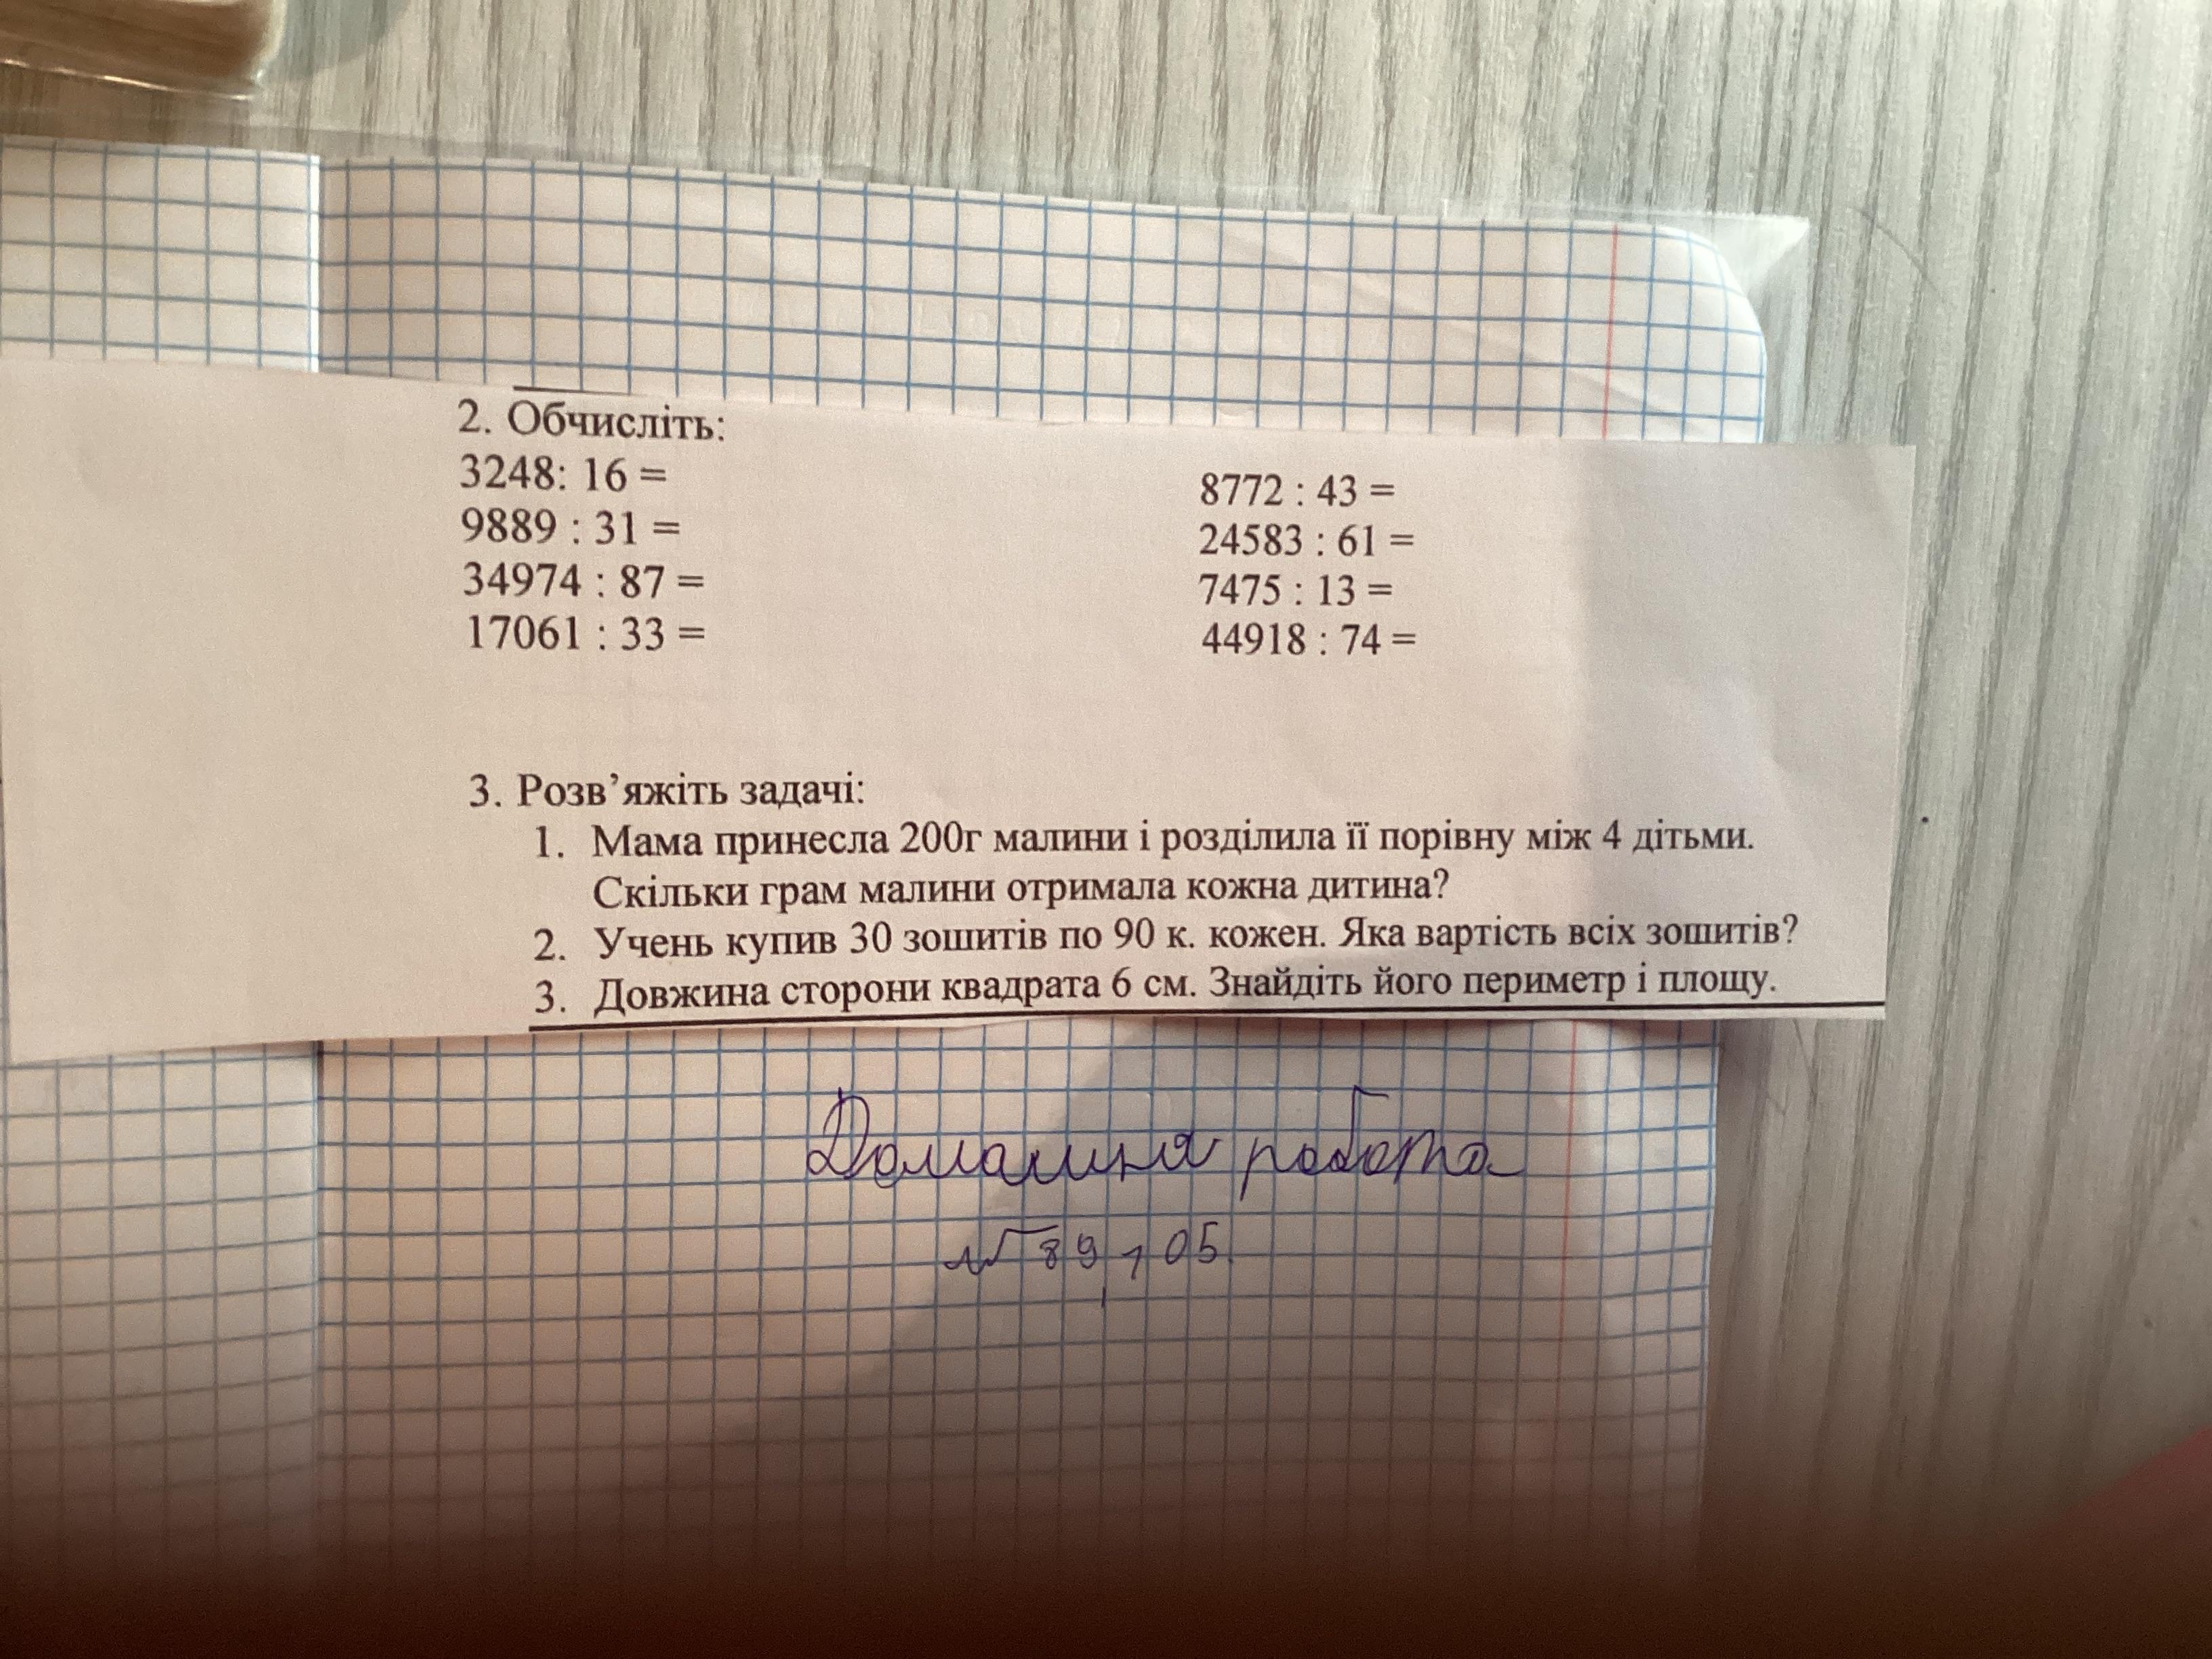 2. Обчисліть:
3248: 16 =
9889 : 31 =
34974 : 87 =
17061 : 33 =
8772 : 43 =
24583 : 61 =
7475 : 13 =
44918 : 74 =
3. Розв’яжіть задачі:
1. Мама принесла 200г малини і розділила її порівну між 4 дітьми.
Скільки грам малини отримала кожна дитина?
2. Учень купив 30 зошитів по 90 к. кожен. Яка вартість всіх зошитів?
3. Довжина сторони квадрата 6 см. Знайдіть його периметр і площу.
Домашня робота
№ 89, 05.